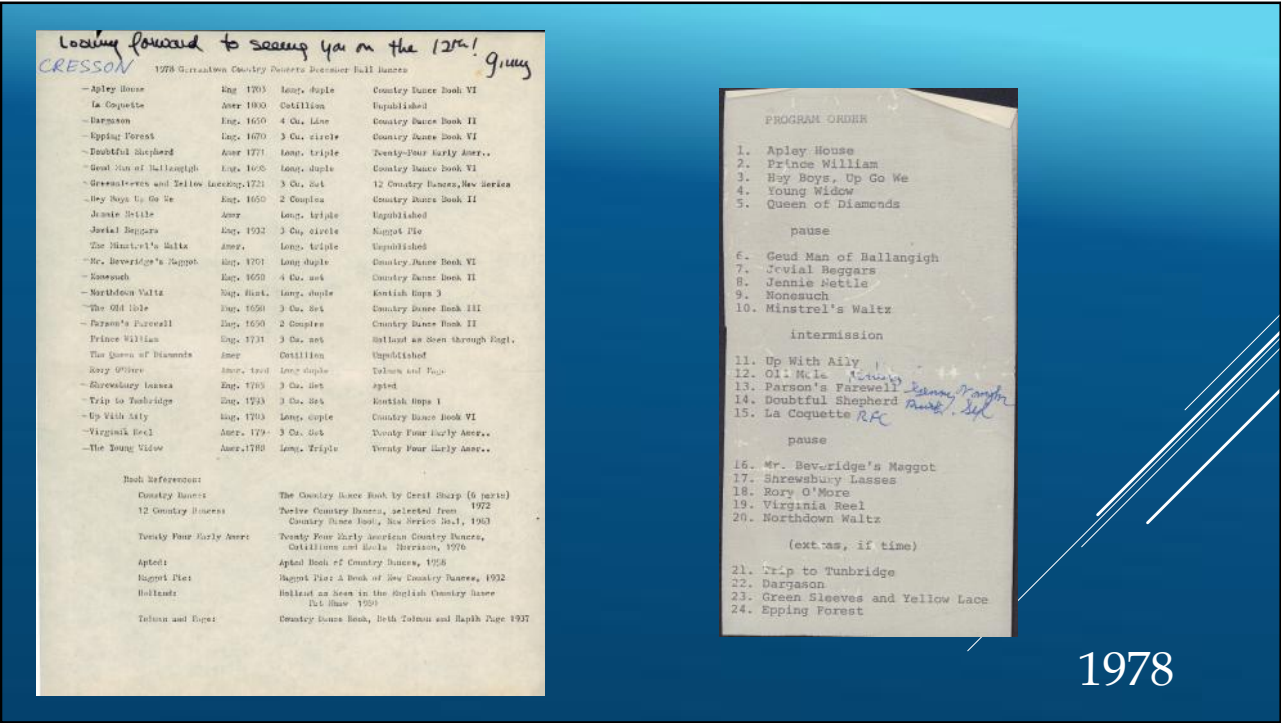 Looking forward to seeing you on the 12th!
Ginny
CRESSON
1978 Germantown Country Dancers December Ball Dances
—Apley House Eng 1703 Long. duple Country Dance Book VI
La Coquette Amer 1800 Cotillion Unpublished
—Dargason Eng. 1650 4 Cu. Line Country Dance Book II
—Epping Forest Eng. 1670 3 Cu. circle Country Dance Book VI
—Doubtful Shepherd Amer 1771 Long. triple Twenty-Four Early Amer..
—Geud Man of Ballangigh Eng. Long. duple Country Dance Book VI
—Greensleeves and Yellow Lace Eng. 1721 3 Cu. Set 12 Country Dances, New Series
—Hey Boys Up Go We Eng. 1650 2 Couples Country Dance Book II
Jennie Nettle Amer Long. triple Unpublished
Jovial Beggars Eng. 1932 3 Cu, circle Maggot Pie
The Minstrel's Waltz Amer. Long. triple Unpublished
—Mr. Beveridge's Maggot Eng. 1701 Long duple Country Dance Book VI
—Nonesuch Eng. 1650 4 Cu. set Country Dance Book II
—Northdown Waltz Eng. Long. duple Kentish Hops 3
—The Old Mole Eng. 1650 3 Cu. Set Country Dance Book III
—Parson's Farewell Eng. 1650 2 Couples Country Dance Book II
Prince William Eng. 1731 3 Cu. set Holland as Seen through Engl.
The Queen of Diamonds Amer Cotillion Unpublished
Rory O'More Amer. trad Long duple Tolman and Page
—Shrewsbury Lasses Eng. 1765 3 Cu. Set Apted
—Trip to Tunbridge Eng. 1793 3 Cu. Set Kentish Hops 1
—Up With Aily Eng. 1703 Long. duple Country Dance Book VI
—Virginia Reel Amer. 179- 3 Cu. Set Twenty Four Early Amer..
—The Young Widow Amer. 1788 Long. Triple Twenty Four Early Amer..
Book References:
Country Dance: The Country Dance Book by Cecil Sharp (6 parts)
1972
12 Country Dances: Twelve Country Dances, selected from
Country Dance Book, New Series No.1, 1963
Twenty Four Early Amer: Twenty Four Early American Country Dances,
Cotillions and Reels Morrison, 1976
Apted: Apted Book of Country Dances, 1958
Maggot Pie: Maggot Pie: A Book of New Country Dances, 1932
Holland: Holland as Seen in the English Country Dance
Pat Shaw 1960
Tolman and Page: Country Dance Book, Beth Tolman and Ralph Page 1937
PROGRAM ORDER
1. Apley House
2. Prince William
3. Hey Boys, Up Go We
4. Young Widow
5. Queen of Diamonds
pause
6. Geud Man of Ballangigh
7. Jovial Beggars
8. Jennie Nettle
9. Nonesuch
10. Minstrel's Waltz
intermission
11. Up With Aily
12. Old Mole
13. Parson's Farewell
14. Doubtful Shepherd
15. La Coquette RFC
pause
16. Mr. Beveridge's Maggot
17. Shrewsbury Lasses
18. Rory O'More
19. Virginia Reel
20. Northdown Waltz
(extras, if time)
21. Trip to Tunbridge
22. Dargason
23. Green Sleeves and Yellow Lace
24. Epping Forest
1978